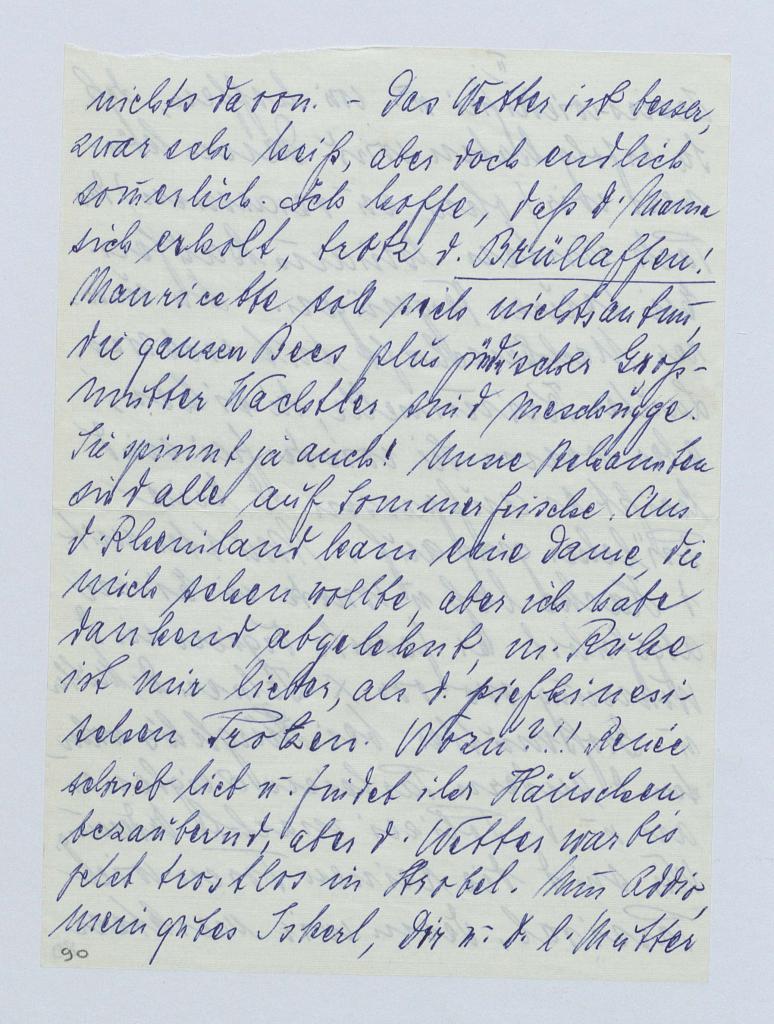 nichts davon. – Das Wetter ist besser,
zwar sehr heiß, aber doch endlich
som̄erlich. Ich hoffe, daß d. Mama
sich erholt, trotz d. Brüllaffen!
Mauricette soll sich nichts antun,
die ganzen Bees plus jüdischer Groß-
mutter Wachtler sind meschugge.
Sie spinnt ja auch! Unsre Bekannten
sind alle auf Sommerfrische. Aus
d. Rheinland kam eine Dame, die
mich sehen wollte, aber ich habe
dankend abgelehnt, m. Ruhe
ist mir lieber, als d. piefkinesi-
schen Protzen. Wozu?!! Renée
schrieb lieb u. findet ihr Häuschen
bezaubernd, aber d. Wetter war bis
jetzt trostlos in Strobel. Nun Addio,
mein gutes, Dir u. d. l. Mutter
90